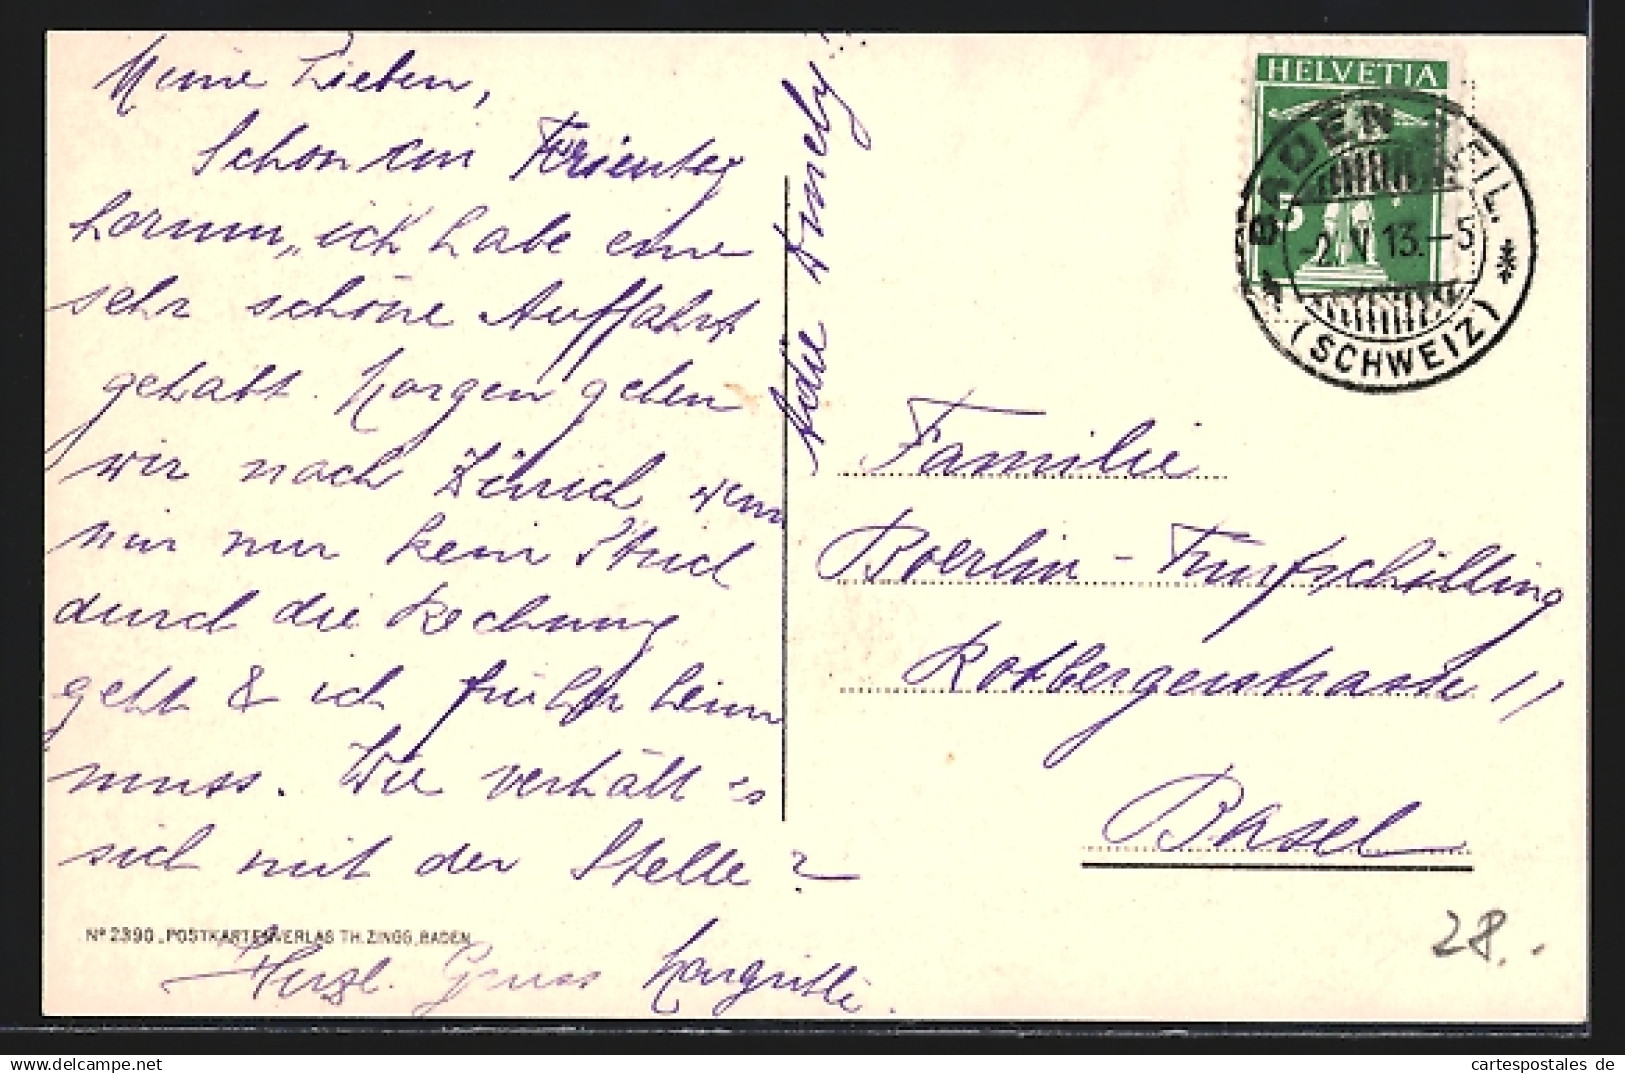 Meine Lieben,
Schon ein Ferientag
herum, ich habe eine
sehr schöne Auffahrt
gehabt. Morgen gehen
wir nach Zürich wenn
mir nur kein Strich
durch die Rechnung
geht & ich früher heim
muss. Wie verhält es
sich mit der Stelle?
Herzl. Gruss Margritli.
Adie Annely
Nº 2390. POSTKARTENVERLAG TH. ZINGG, BADEN
HELVETIA
5
BADEN
2. V. 13.-5
(SCHWEIZ)
Familie
Boerlin - Fünfschilling
Rotbergerstrasse 11
Basel
28.-
cartespostales de